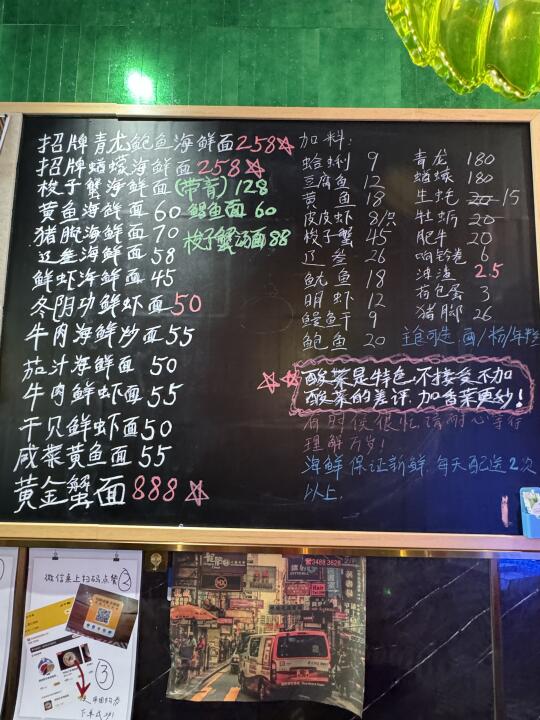 招牌青龙鲍鱼海鲜面258☆
招牌蝤蠓海鲜面258☆
梭子蟹海鲜面(带膏)128
黄鱼海鲜面60 鲳鱼面60
猪腕海鲜面70 梭子蟹汤面88
辽参海鲜面58
鲜虾海鲜面45
冬阴功鲜虾面50
牛肉海鲜炒面55
茄汁海鲜面50
牛肉鲜虾面55
干贝鲜虾面50
咸菜黄鱼面55
黄金蟹面888☆
加料:
蛤蜊 9
豆腐鱼 12
黄鱼 18
皮皮虾 8/只
梭子蟹 45
辽参 26
鱿鱼 18
明虾 12
鳗鱼干 9
鲍鱼 20
青龙 180
蝤蠓 180
生蚝 20 15
牡蛎 20
肥牛 20
响铃卷 6
油渣 2.5
荷包蛋 3
猪脚 26
主食可选:面/粉/年糕
☆☆酸菜是特色,不接受不加
酸菜的差评,加香菜更妙!
有时候很忙,请耐心等待
理解万岁!
海鲜保证新鲜,每天配送2次
以上.
微信桌上扫码点餐②
③
下单成功!
3488 3628